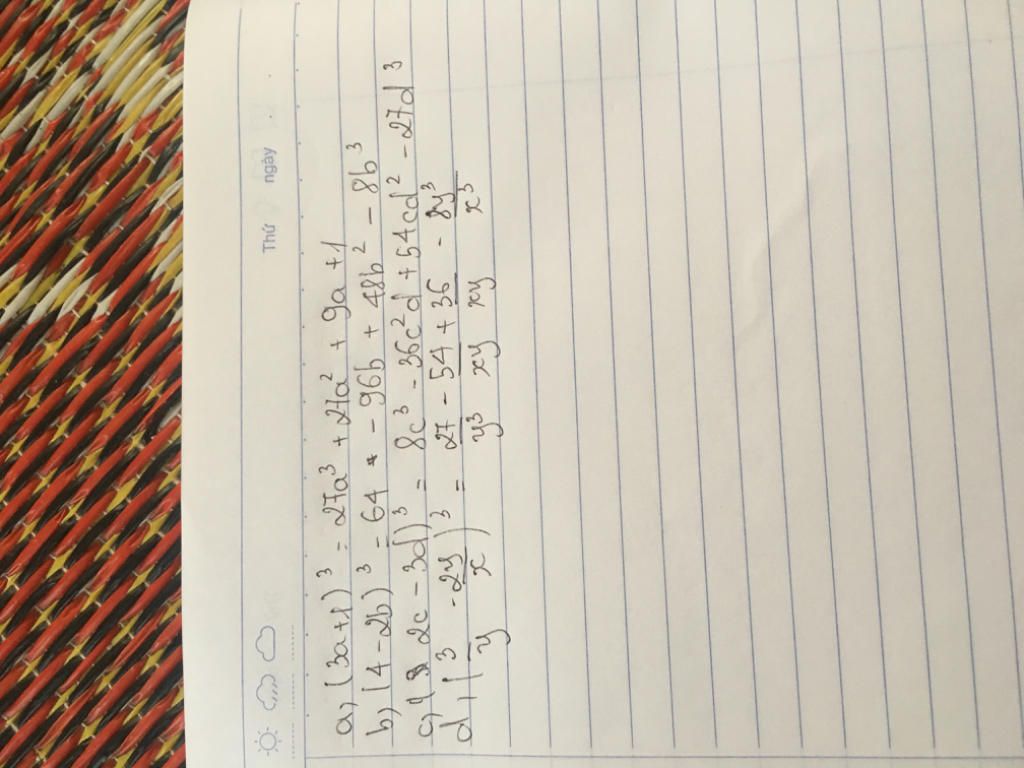 Thứ ngày
a) (3a+1)³ = 27a³ + 27a² + 9a + 1
b) (4 - 2b)³ = 64 - 96b + 48b² - 8b³
c) (2c - 3d)³ = 8c³ - 36c²d + 54cd² - 27d³
d) (3/y - 2y/x)³ = 27/y³ - 54/xy + 36/xy - 8y³/x³